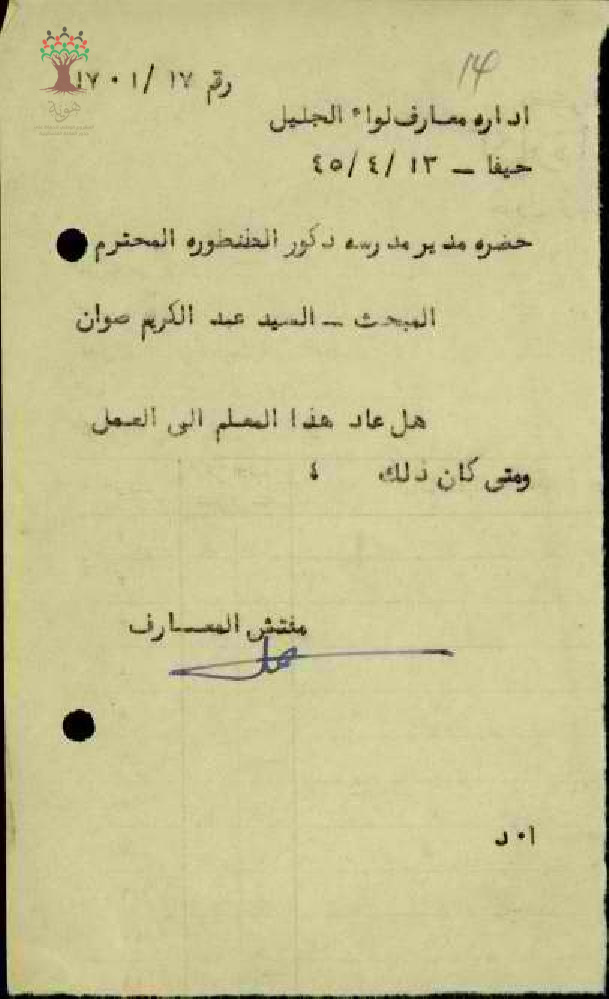 14
رقم ١٧ /١٧٠١
اداره معارف لواء الجليل
حيفا – ١٣ /٤/ ٤٥
حضره مدير مدرسه ذكور الطنطوره المحترم
المبحث – السيد عبد الكريم صوان
هل عاد هذا المعلم الى العمل
ومتى كان ذلك ؟
مفتش المعارف
ا٠ د
هوية